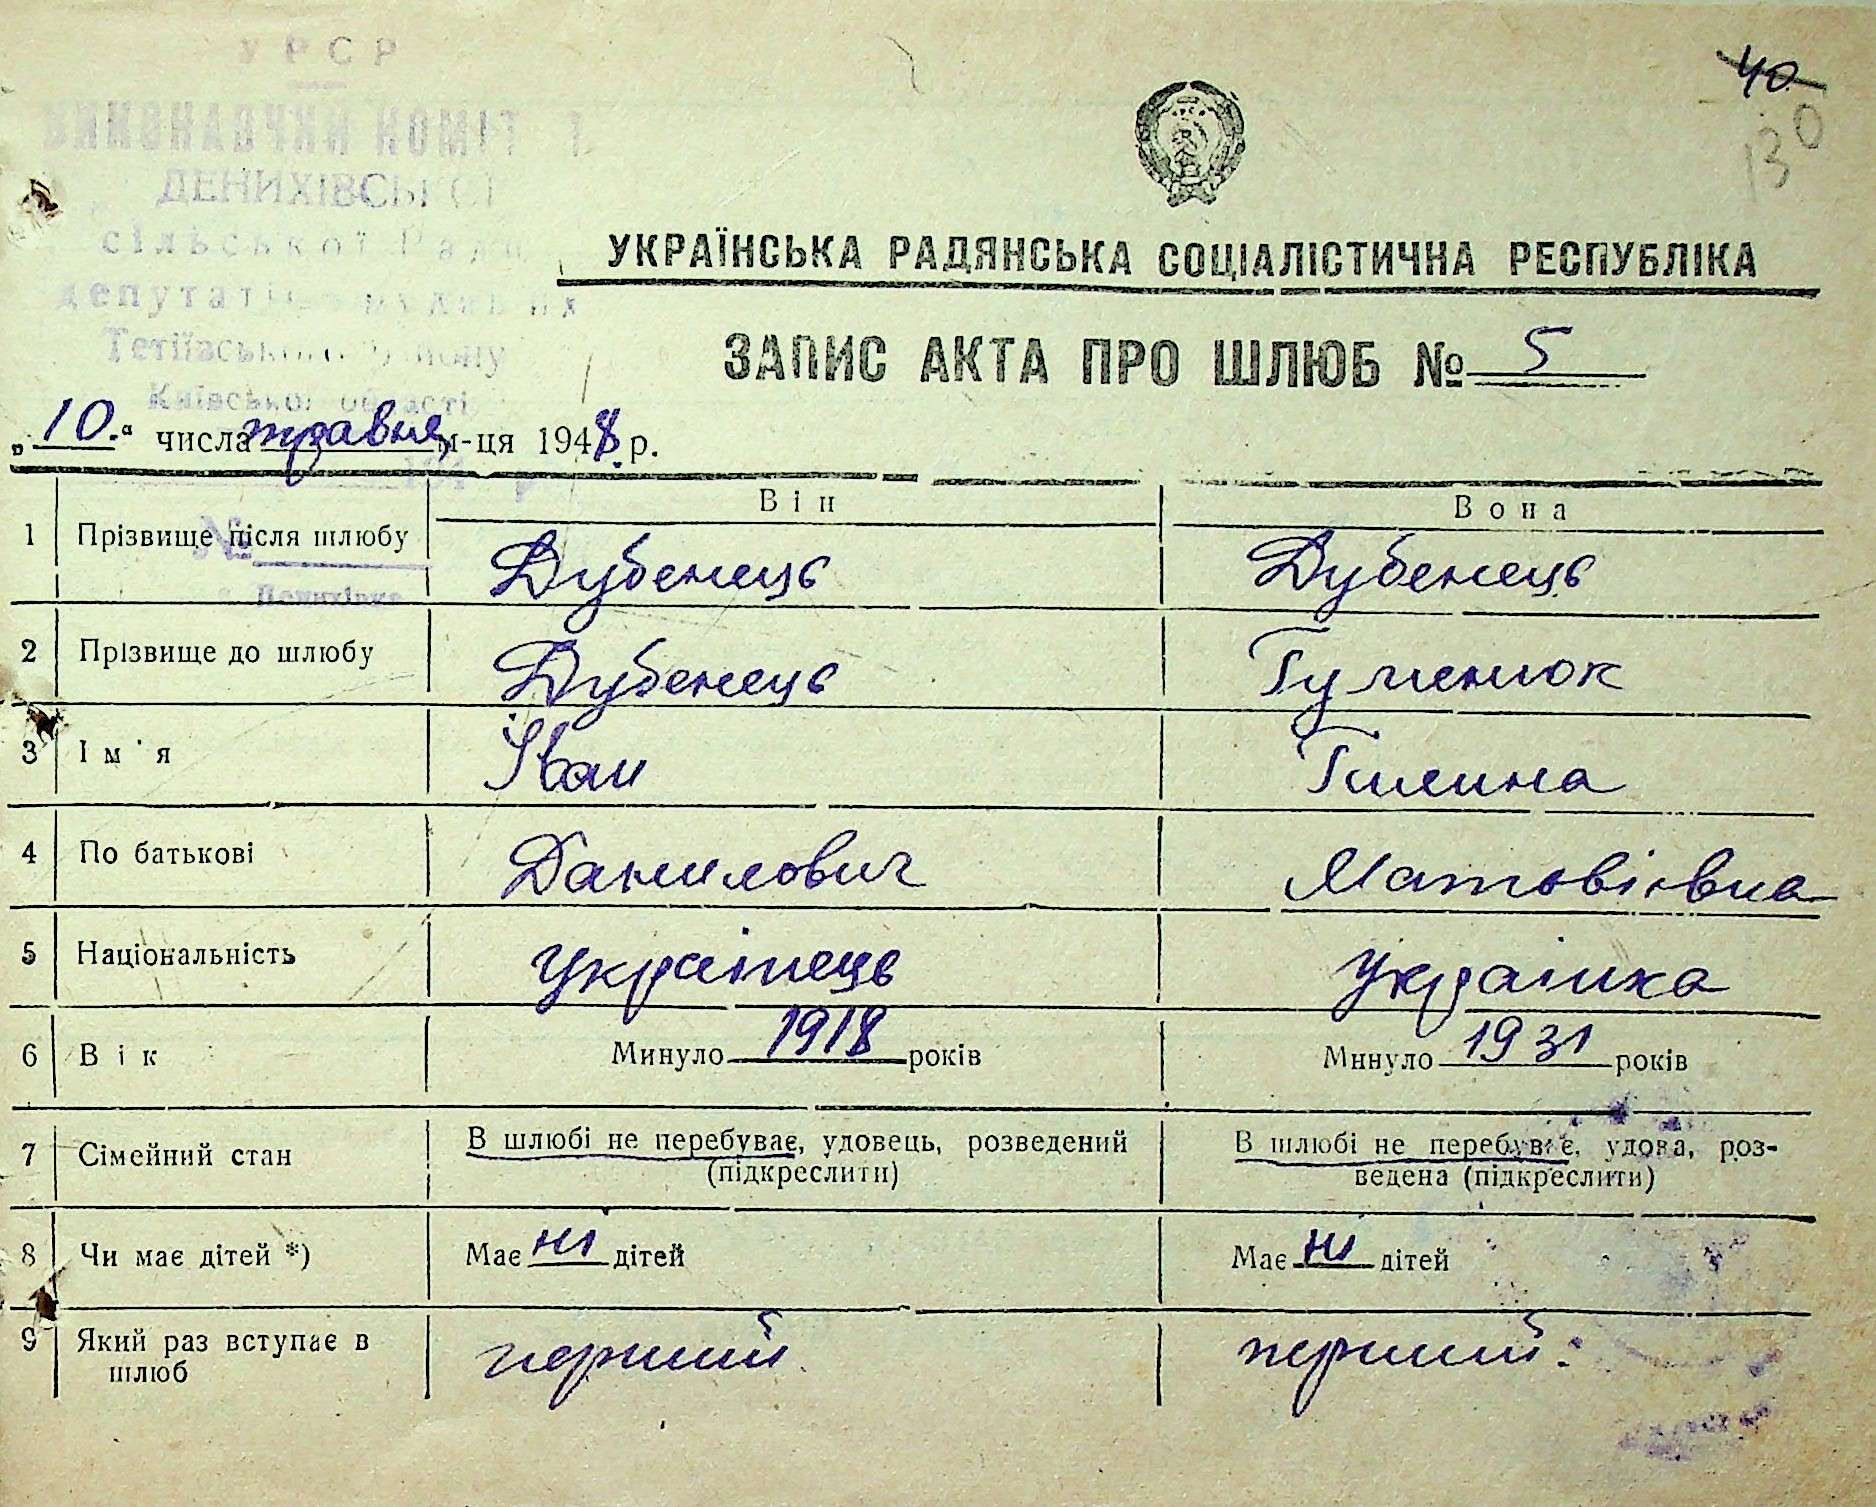 УРСР
ВИКОНАВЧИЙ КОМІТ
ДЕНИХІВСЬКОЇ
сільської Ради
депутатів
Тетіївського району
Київської області
40
130
УКРАЇНСЬКА РАДЯНСЬКА СОЦІАЛІСТИЧНА РЕСПУБЛІКА
ЗАПИС АКТА ПРО ШЛЮБ № 5
„10.“ числа травня м-ця 1948 р.
Він Вона
1 Прізвище після шлюбу Дубенець Дубенець
№
2 Прізвище до шлюбу Дубенець Гуменюк
3 Ім'я Іван Галина
4 По батькові Данилович Матвіівна
5 Національність Українець Українка
6 Вік Минуло 1918 років Минуло 1931 років
7 Сімейний стан В шлюбі не перебуває, удовець, розведений (підкреслити) В шлюбі не перебуває, удова, роз-
ведена (підкреслити)
8 Чи має дітей *) Має ні дітей Має ні дітей
9 Який раз вступає в шлюб перший. перший.